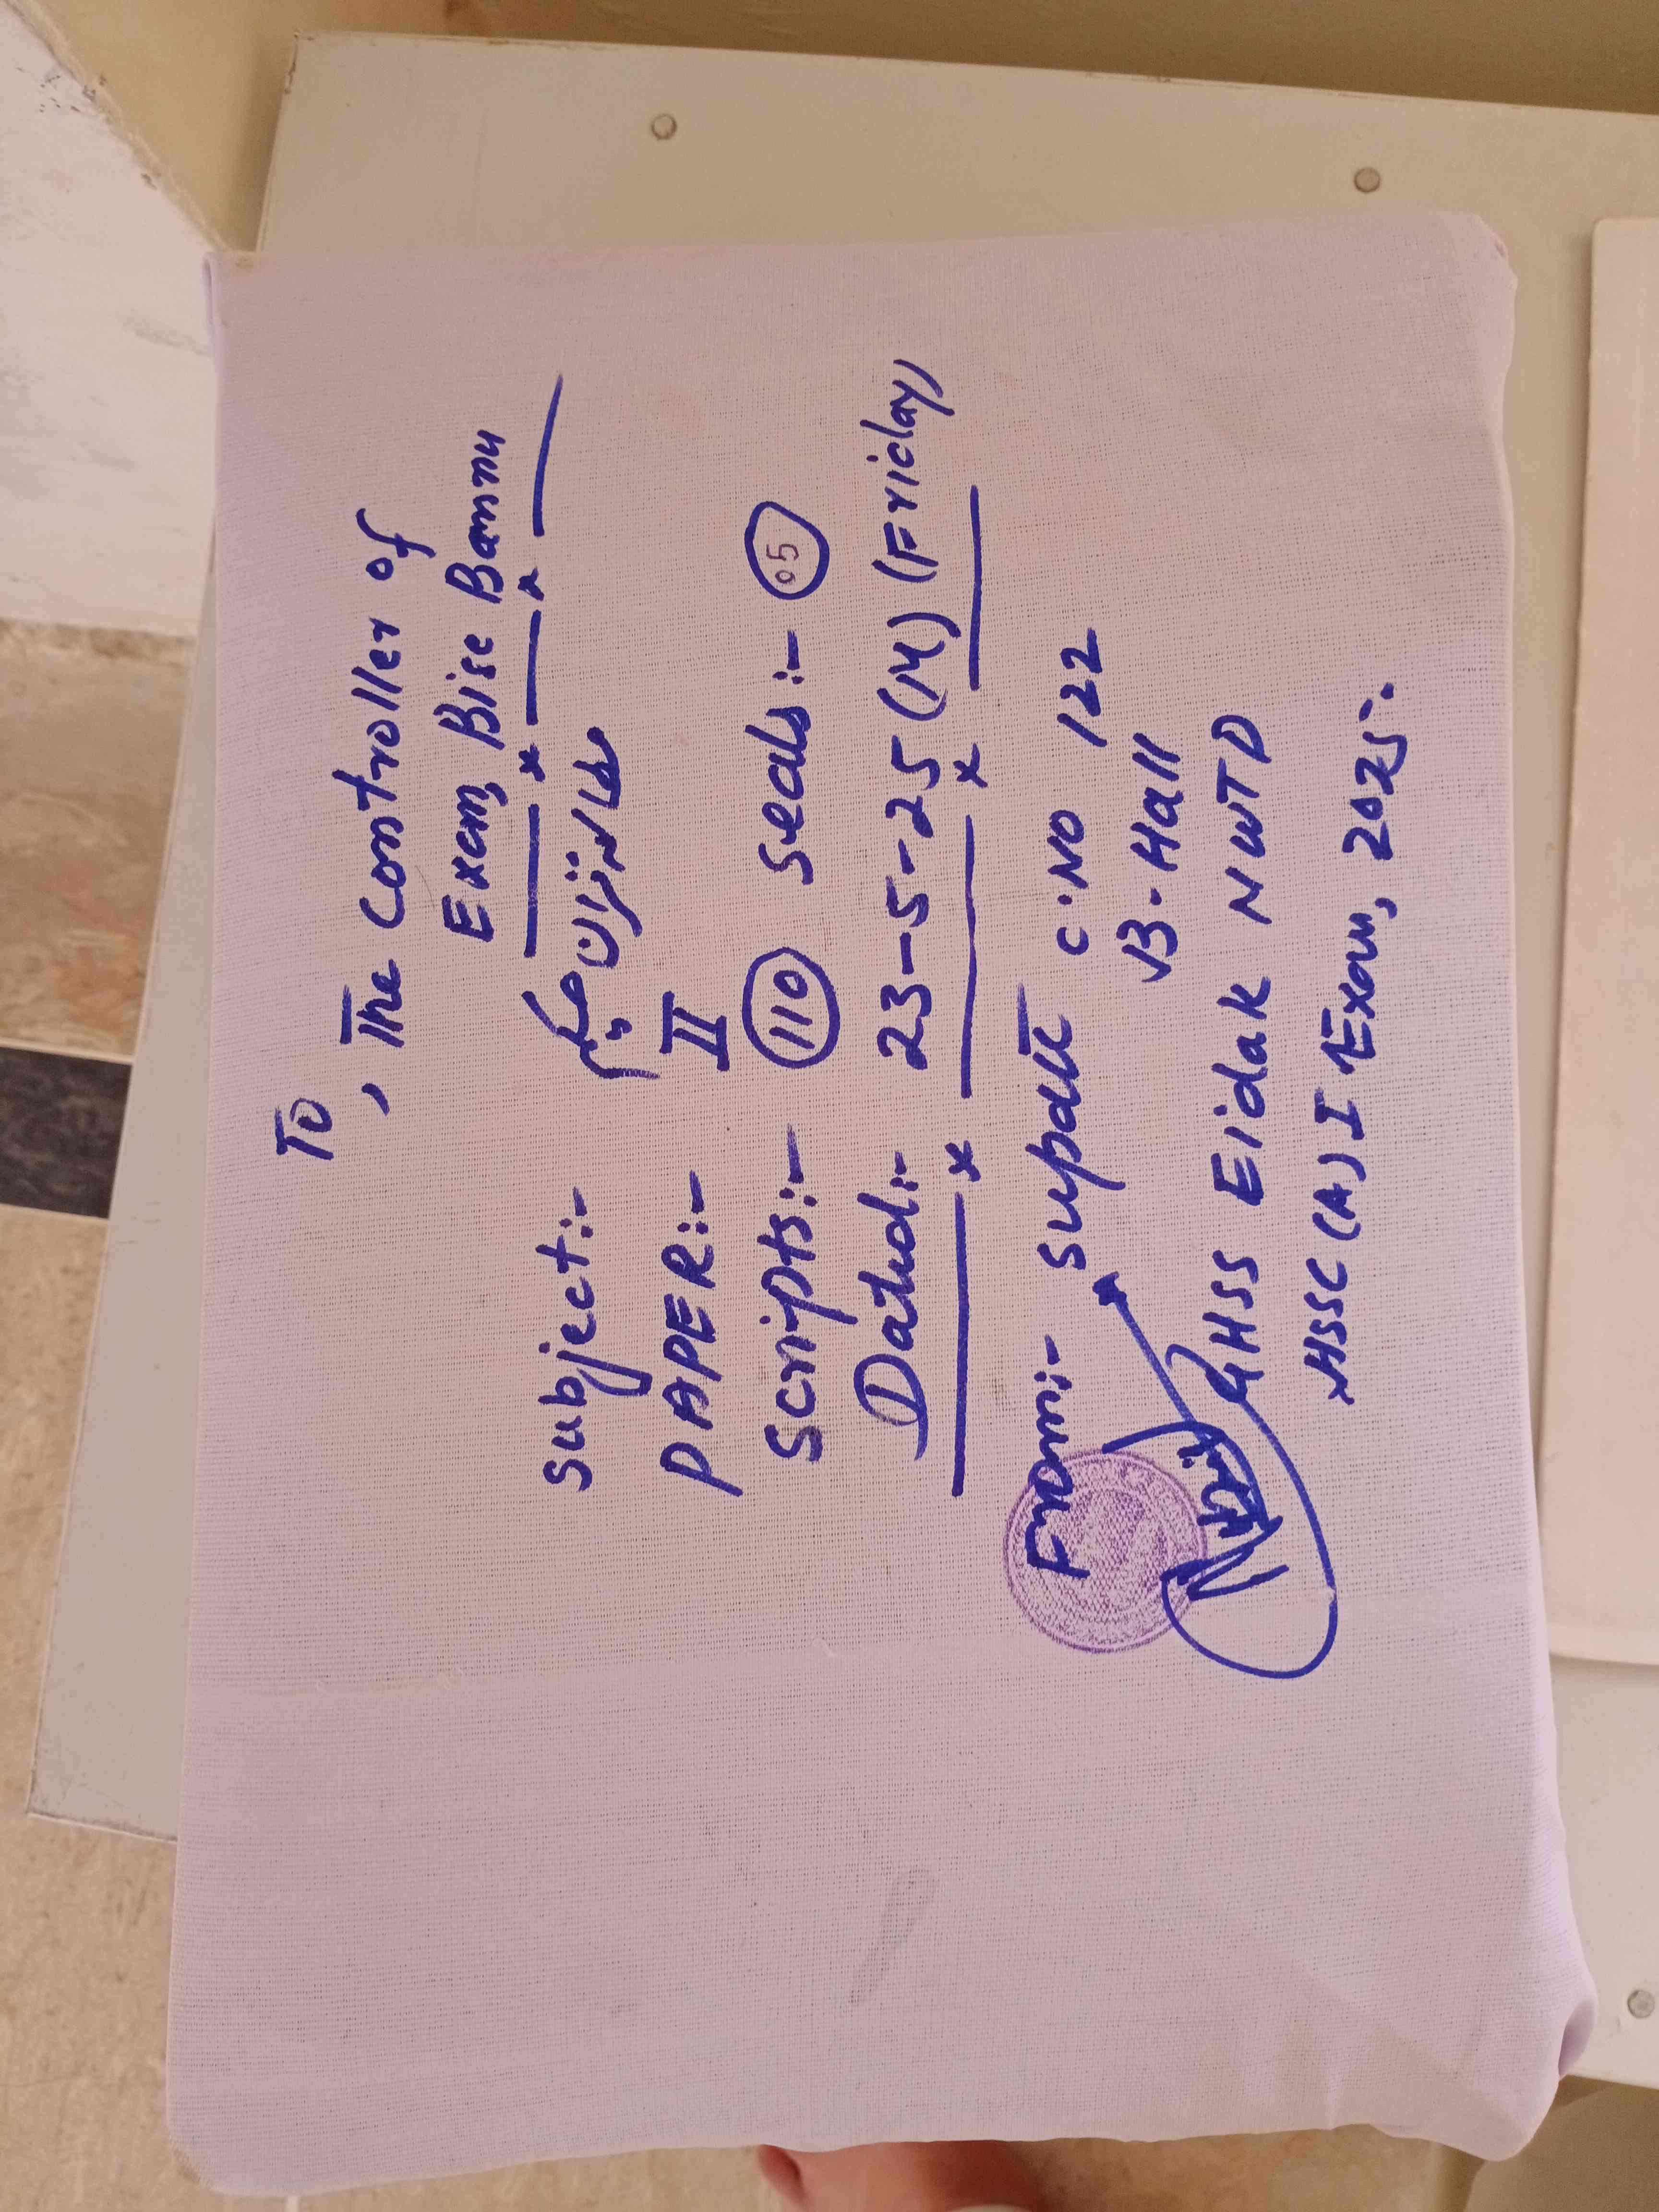 To
, The Controller of
Exam, Bise Bannu
Subject:- مطالعہ قرآن حکیم
PAPER:- II
Scripts:- 110 Seals:- 05
Dated:- 23-5-25 (M) (Friday)
From:- Supdtt C.NO 122
B-Hall
GHSS Eidak NWTD
HSSC (A) I Exam, 2025.